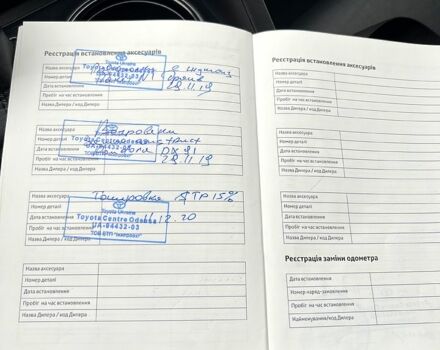 Реєстрація встановлення аксесуарів
Назва аксесуара
Номер деталі
Дата встановлення 28.11.19
Пробіг на час встановлення
Назва Дилера / код Дилера
Toyota Ukraine
UA-04432-03
Назва аксесуара Коврики
Номер деталі
Дата встановлення
Пробіг на час встановлення 28.11.19
Назва Дилера / код Дилера
Назва аксесуара Тонировка STP 15%
Номер деталі
Дата встановлення 11.12.20
Пробіг на час встановлення
Назва Дилера / код Дилера
Toyota Ukraine
Toyota Centre Odessa
UA-04432-03
Назва аксесуара
Номер деталі
Дата встановлення
Пробіг на час встановлення
Назва Дилера / код Дилера
Реєстрація встановлення аксесуарів
Назва аксесуара
Номер деталі
Дата встановлення
Пробіг на час встановлення
Назва Дилера / код Дилера
Назва аксесуара
Номер деталі
Дата встановлення
Пробіг на час встановлення
Назва Дилера / код Дилера
Назва аксесуара
Номер деталі
Дата встановлення
Пробіг на час встановлення
Назва Дилера / код Дилера
Реєстрація заміни одометра
Дата встановлення
Номер наряд-замовлення
Пробіг на час встановлення
Найменування/код Дилера